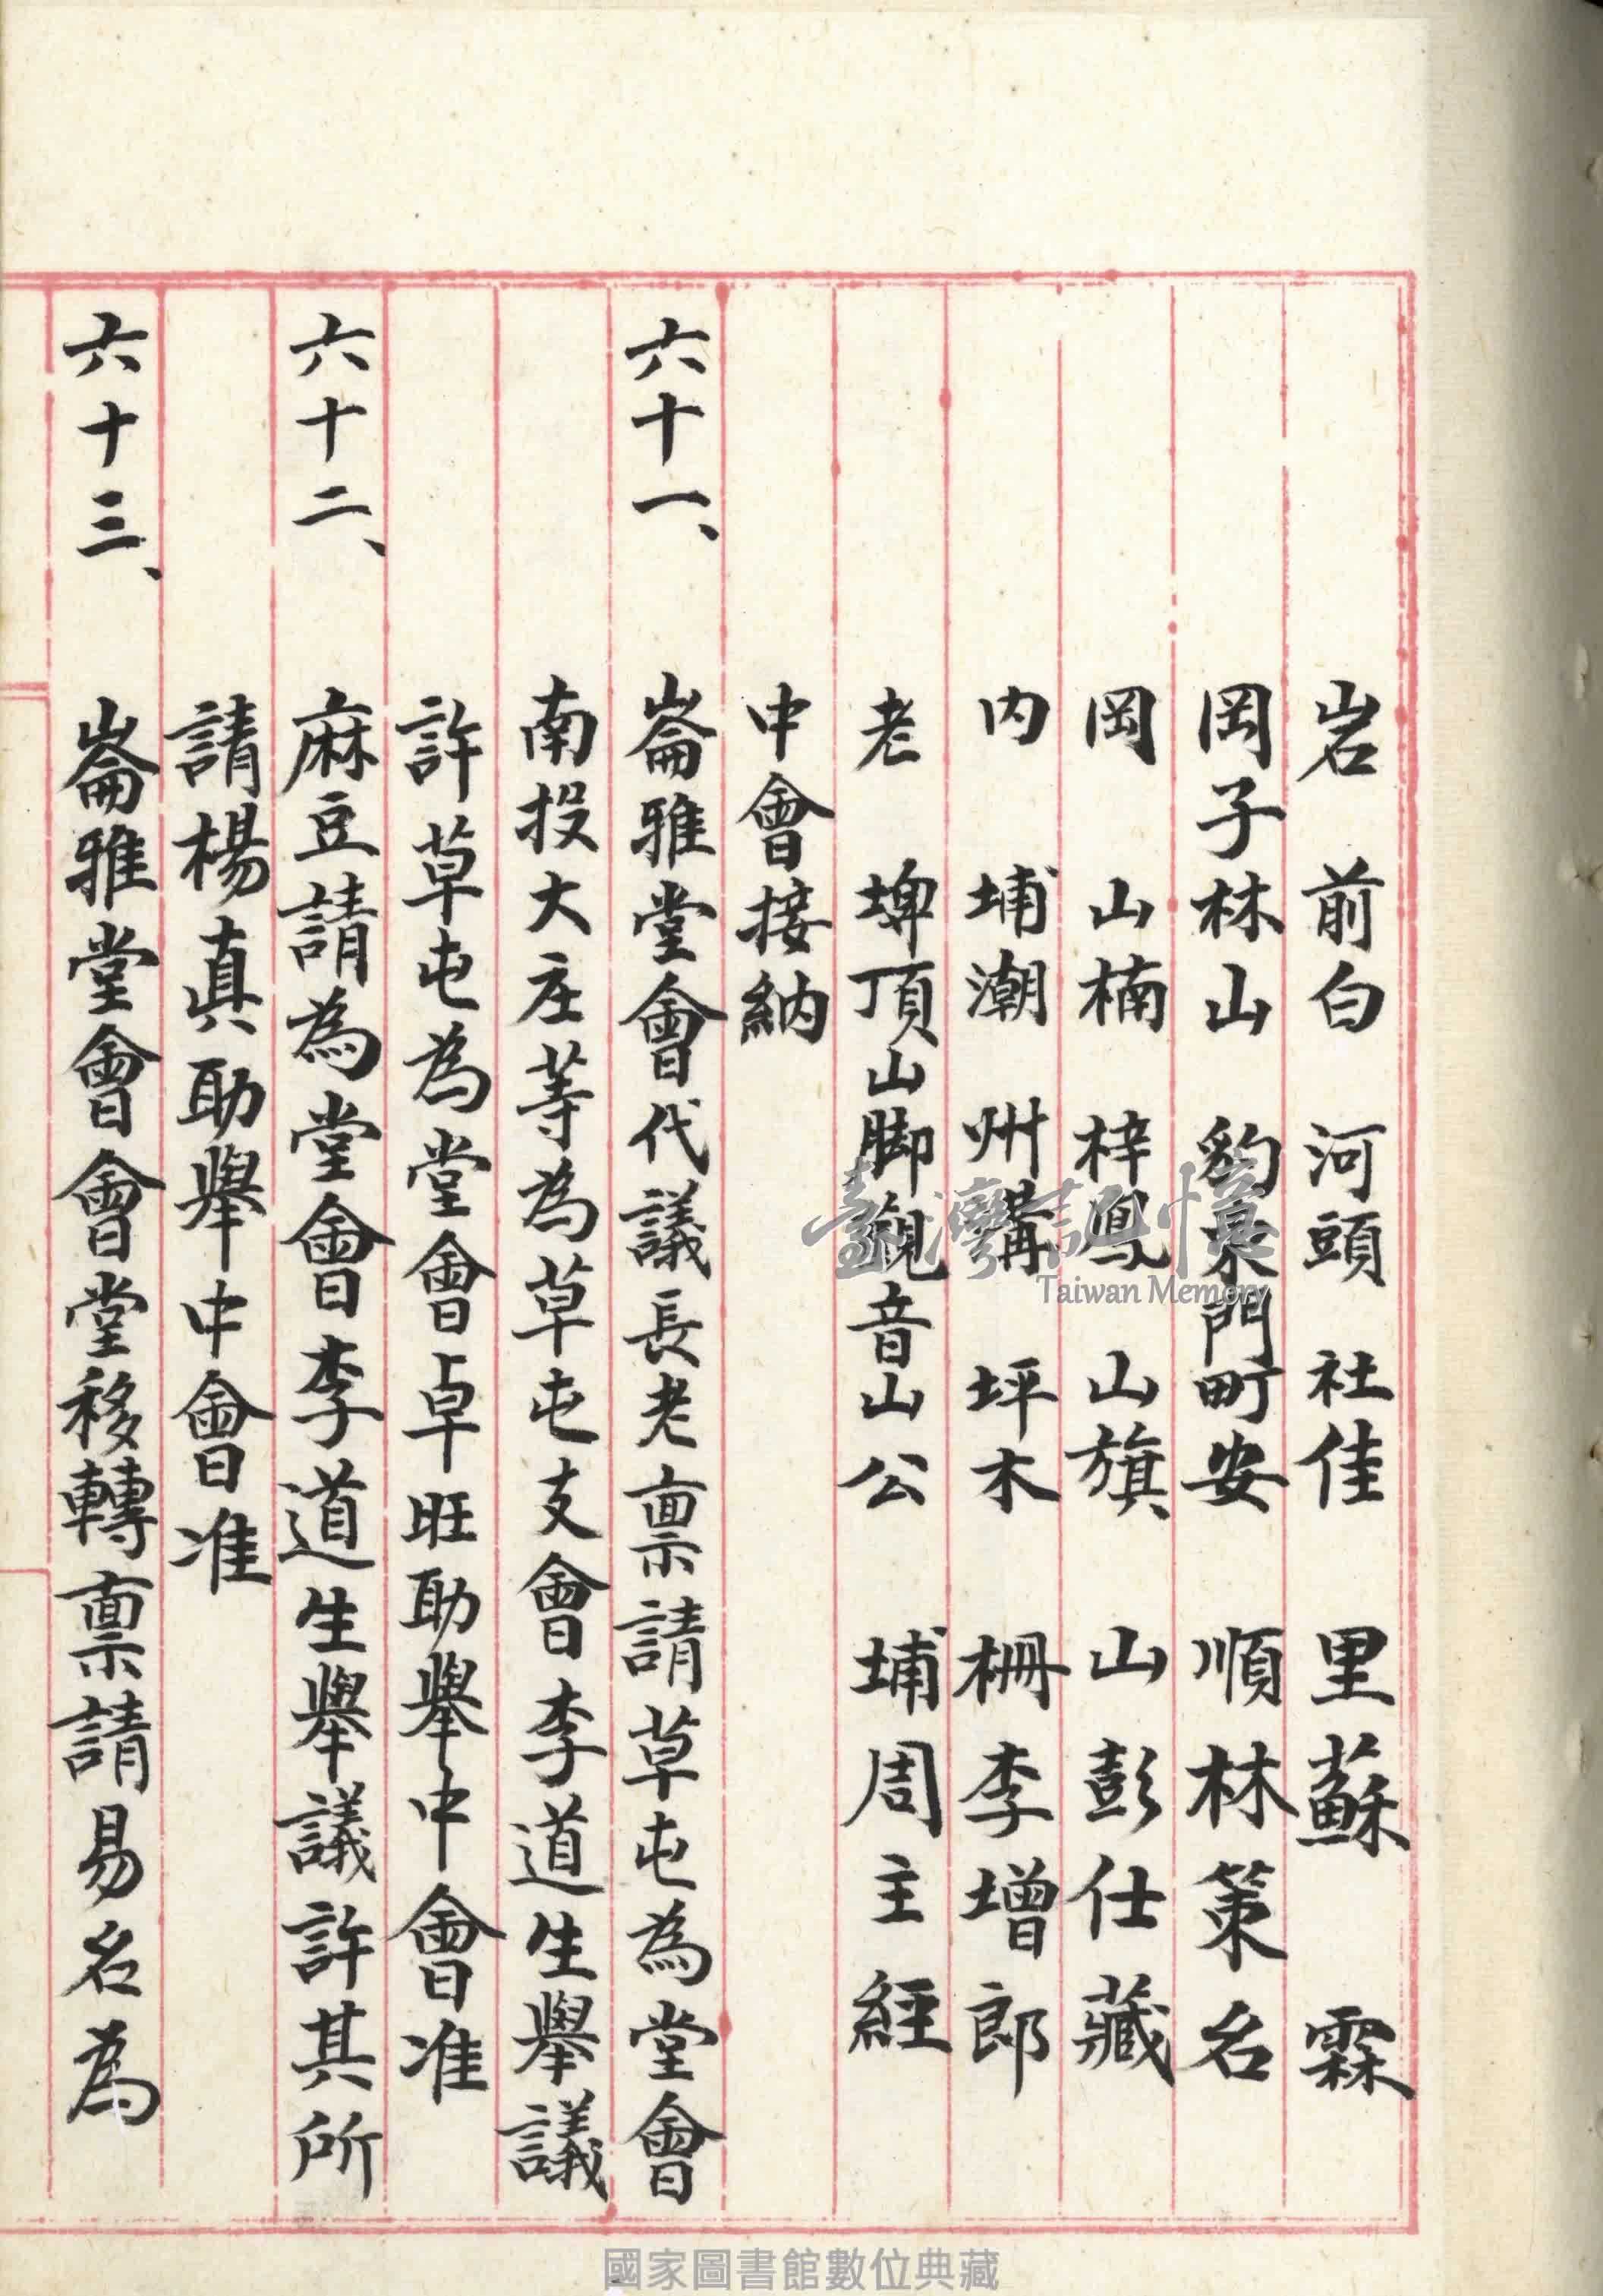 岩　前白　河頭　社佳　里蘇　霖
岡子林山　豹東門町安　順林策名
岡　山楠　梓鳳　山旗　山彭仕藏
內　埔潮　州溝　坪木　柵李增郎
老　埤頂山脚觀音山公　埔周主經
中會接納
六十一、　崙雅堂會代議長老稟請草屯為堂會
南投大庄等為草屯支會李道生舉議
許草屯為堂會卓旺助舉中會准
六十二、　麻豆請為堂會李道生舉議許其所
請楊真助舉中會准
六十三、　崙雅堂會會堂移轉稟請易名為
臺灣記憶
Taiwan Memory
國家圖書館數位典藏